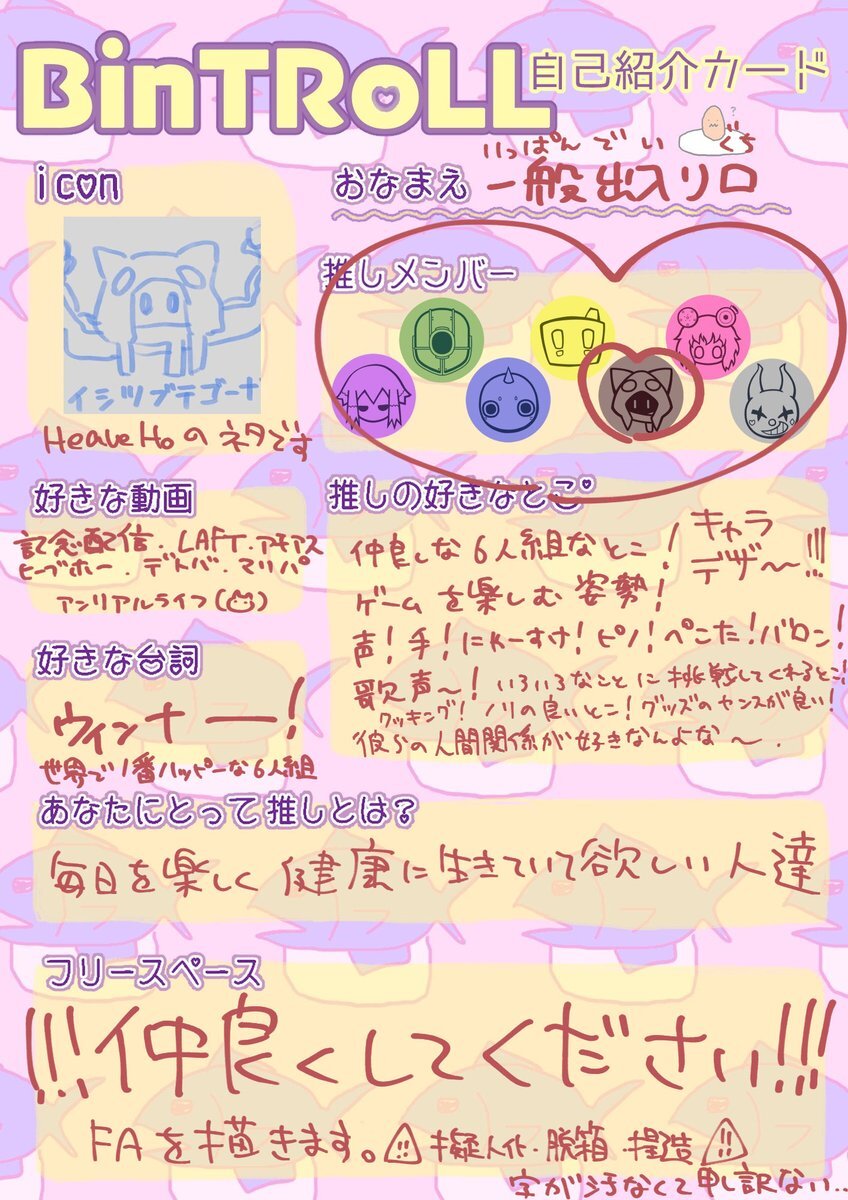 BinTRoLL 自己紹介カード
?
icon
おなまえ
いっぱんでいぐち
一般出入り口
イシツブテゴーナ
HeaveHoのネタです
推しメンバー
好きな動画
記念配信.LAFT.アモアス
ヒーブホー.デトバ.マリパ
アンリアルライフ( )
好きな台詞
ウィンナー!
世界で1番ハッピーな6人組
推しの好きなとこ
仲良しな6人組なとこ!キャラデザ〜!!!
ゲームを楽しむ姿勢!
声!手!にkーすけ!ピノ!ぺこた!バロン!
歌声〜!いろいろなことに挑戦してくれるとこ!
クッキング!ノリの良いとこ!グッズのセンスが良い!
彼らの人間関係が好きなんよな〜.
あなたにとって推しとは?
毎日を楽しく健康に生きていて欲しい人達
フリースペース
!!!仲良くしてください!!!
FAを描きます。⚠擬人化・脱箱・捏造⚠
字が汚なくて申し訳ない..